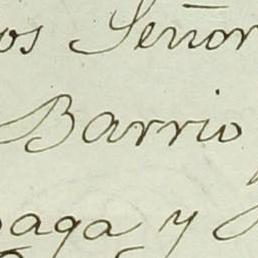 os Señor
Barrio
paga y